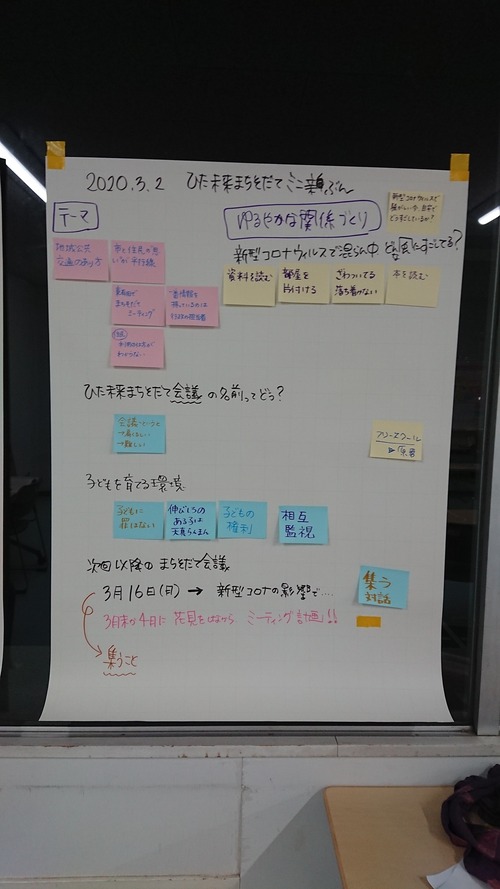 2020.3.2 ひた未来まちそだてミニ新ぶん
テーマ
ゆるやかな関係づくり
新型コロナウィルスで
地域公共
交通のあり方
市と住民の思
いが平行線
新型コロナウィルスで混らん中 どんな風にすごしてる?
資料を読む
部屋を
片付ける
ざわついてる
落ち着かない
本を読む
まちそだて
ミーティング
一番情報を
持っているのは
利用方法が
わからない
ひた未来まちそだて会議の名前ってどう?
会議というと
→難しい
フリースクール
子どもを育てる環境
子どもに
罪はない
伸びしろの
ある子は
天真らんまん
子どもの
権利
相互
監視
次回以降のまちそだて会議
3月16日(月) → 新型コロナの影響で....
集う
対話
3月末か4月に 花見をしながら ミーティング計画!!
集うこと